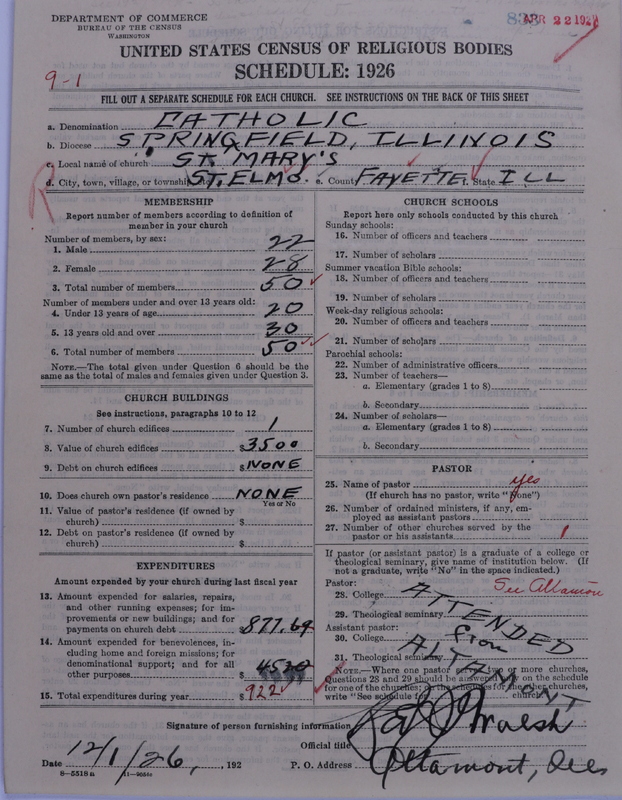 DEPARTMENT OF COMMERCE
BUREAU OF THE CENSUS
WASHINGTON
APR 22 192
UNITED STATES CENSUS OF RELIGIOUS BODIES
SCHEDULE: 1926
9-1
FILL OUT A SEPARATE SCHEDULE FOR EACH CHURCH. SEE INSTRUCTIONS ON THE BACK OF THIS SHEET
a. Denomination CATHOLIC
b. Diocese SPRINGFIELD, ILLINOIS
c. Local name of church ST. MARY'S
d. City, town, village, or township ST. ELMO. e. County FAYETTE f. State ILL
MEMBERSHIP
Report number of members according to definition of
member in your church
Number of members, by sex:
1. Male 22
2. Female 28
3. Total number of members 50
Number of members under and over 13 years old:
4. Under 13 years of age 20
5. 13 years old and over 30
6. Total number of members 50
NOTE.—The total given under Question 6 should be the
same as the total of males and females given under Question 3.
CHURCH BUILDINGS
See instructions, paragraphs 10 to 12
7. Number of church edifices 1
8. Value of church edifices $3500
9. Debt on church edifices $NONE
10. Does church own pastor's residence NONE
Yes or No
11. Value of pastor's residence (if owned by
church) $
12. Debt on pastor's residence (if owned by
church) $
EXPENDITURES
Amount expended by your church during last fiscal year
13. Amount expended for salaries, repairs,
and other running expenses; for im-
provements or new buildings; and for
payments on church debt $877.69
14. Amount expended for benevolences, in-
cluding home and foreign missions; for
denominational support; and for all
other purposes $
15. Total expenditures during year $922
CHURCH SCHOOLS
Report here only schools conducted by this church
Sunday schools:
16. Number of officers and teachers
17. Number of scholars
Summer vacation Bible schools:
18. Number of officers and teachers
19. Number of scholars
Week-day religious schools:
20. Number of officers and teachers
21. Number of scholars
Parochial schools:
22. Number of administrative officers
23. Number of teachers—
a. Elementary (grades 1 to 8)
b. Secondary
24. Number of scholars—
a. Elementary (grades 1 to 8)
b. Secondary
PASTOR
25. Name of pastor yes
(If church has no pastor, write "None")
26. Number of ordained ministers, if any, em-
ployed as assistant pastors
27. Number of other churches served by the
pastor or his assistants 1
If pastor (or assistant pastor) is a graduate of a college or
theological seminary, give name of institution below. (If
not a graduate, write "No" in the space indicated.)
Pastor: See Altamont
28. College
ATTENDED
29. Theological seminary
Assistant pastor: from
30. College
ALTAMONT
31. Theological seminary
NOTE.—Where one pastor serves two or more churches,
Questions 28 and 29 should be answered only on the schedule
for one of the churches; on the schedules for the other churches,
write "See schedule for church"
Signature of person furnishing information Walsh
Official title
Date 12/1/26, 192 P. O. Address Altamont, Ills
8-5518a 11-9051